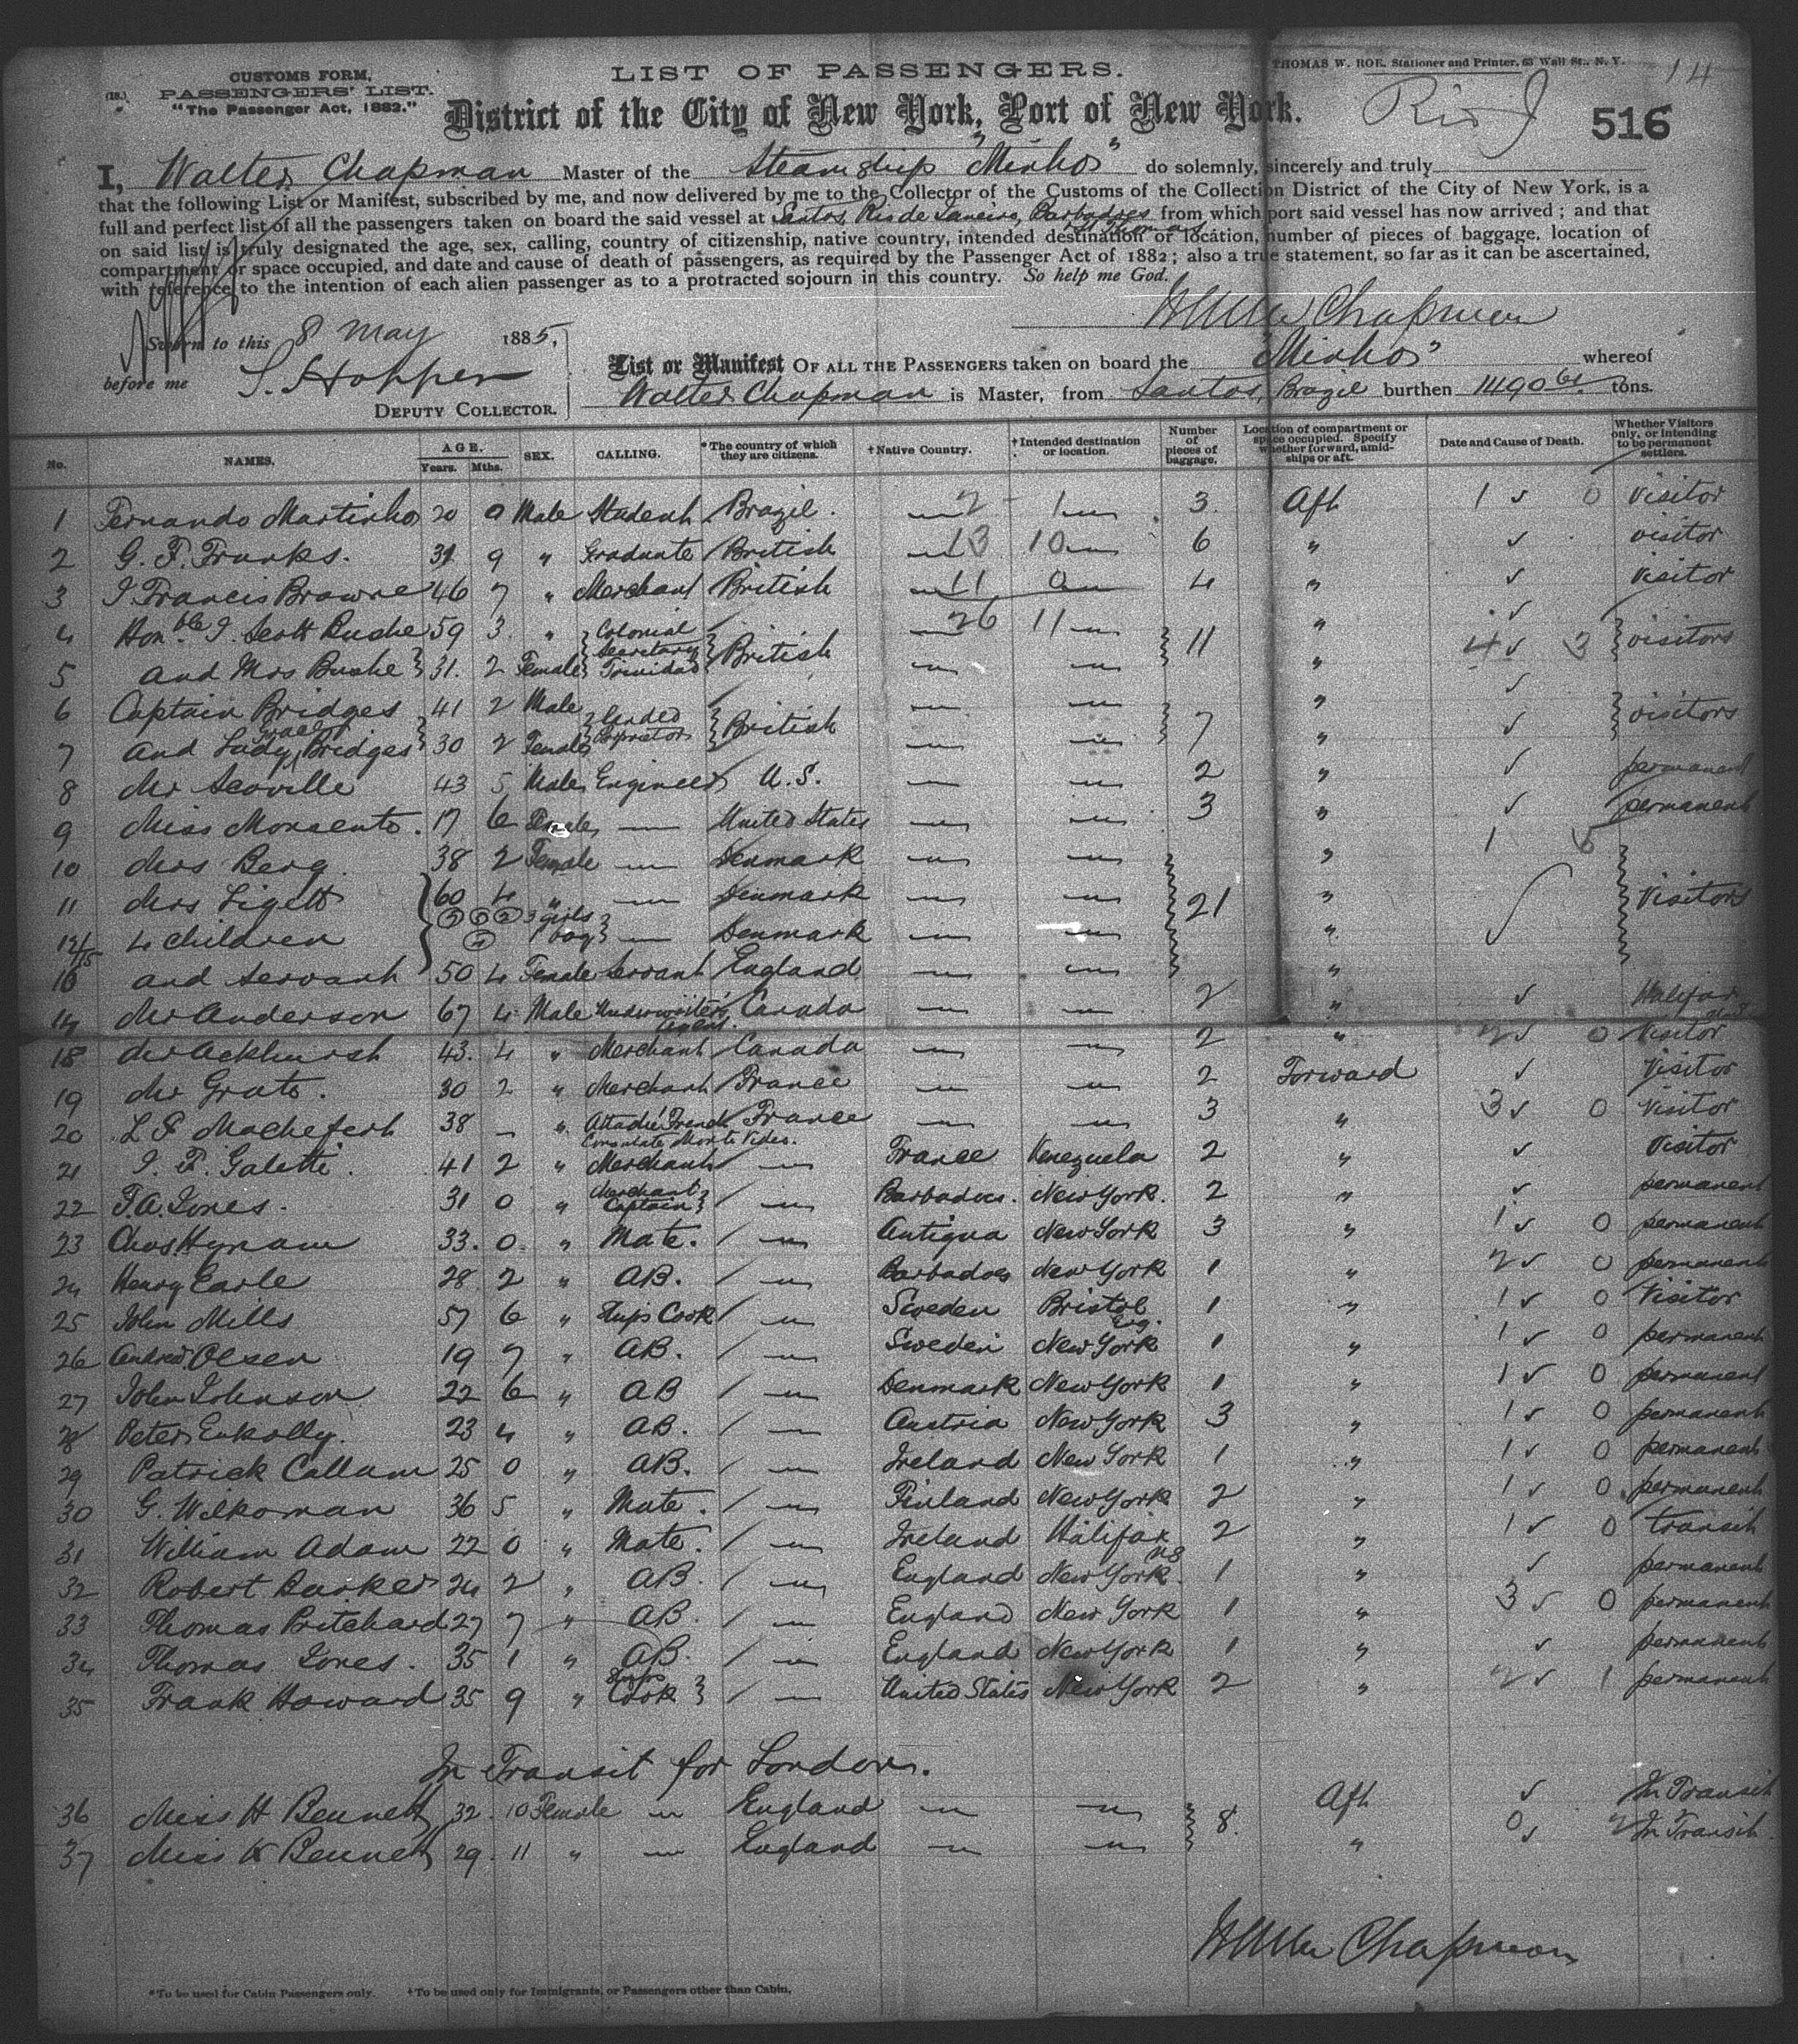 CUSTOMS FORM,
(18.) PASSENGERS' LIST.
"The Passenger Act, 1882."
LIST OF PASSENGERS.
THOMAS W. ROE. Stationer and Printer, 63 Wall St., N. Y.
14
District of the City of New York, Port of New York.
Rio J
516
I, Walter Chapman Master of the Steamship "Minho" do solemnly, sincerely and truly
that the following List or Manifest, subscribed by me, and now delivered by me to the Collector of the Customs of the Collection District of the City of New York, is a
full and perfect list of all the passengers taken on board the said vessel at Santos, Rio de Janeiro, Barbadoes from which port said vessel has now arrived; and that
on said list is truly designated the age, sex, calling, country of citizenship, native country, intended destination or location, number of pieces of baggage, location of
compartment or space occupied, and date and cause of death of passengers, as required by the Passenger Act of 1882; also a true statement, so far as it can be ascertained,
with reference to the intention of each alien passenger as to a protracted sojourn in this country. So help me God.
Walter Chapman
Sworn to this 8 May 1885,
before me S. Hopper
DEPUTY COLLECTOR.
List or Manifest OF ALL THE PASSENGERS taken on board the "Minho" whereof
Walter Chapman is Master, from Santos, Brazil burthen 1490 tons.
No. NAMES. AGE. Years. Mths. SEX. CALLING. *The country of which they are citizens. †Native Country. †Intended destination or location. Number of pieces of baggage. Location of compartment or space occupied. Specify whether forward, amidships or aft. Date and Cause of Death. Whether Visitors only, or intending to be permanent settlers.
1 Fernando Martinho 20 0 Male Student Brazil. — 2 1 — 3 Aft 1 ✓ 0 visitor
2 G. F. Franks. 31 9 " Graduate British — 13 10 — 6 " ✓ visitor
3 J Francis Browne 46 7 " Merchant British — 11 0 — 4 " ✓ visitor
4 Hon.ble J. Scott Bushe 59 3 " Colonial — 26 11 — " ✓
5 and Mrs Bushe 31. 2 Female Secretary Trinidad British — — 11 " 4 ✓ 3 visitors
6 Captain Bridges 41 2 Male Landed — — " ✓
7 and Lady Bridges 30 2 Female Proprietor British — — 7 " ✓ visitors
8 Mr Scoville 43 5 Male Engineer U.S. — — 2 " ✓ permanent
9 Miss Monsento. 17 6 Female — United States — — 3 " ✓ permanent
10 Mrs Berg. 38 2 Female — Denmark — — " 1
11 Mrs Ligett 60 4 " — Denmark — — 21 " visitors
12/15 4 Children 3 girls 1 boy — Denmark — — "
16 and Servant 50 4 Female Servant England — — "
17 Mr Anderson 67 4 Male Underwriters Agent. Canada — — 2 " ✓ Halifax
18 Mr Ackhurst 43. 4 " Merchant Canada — — 2 " 2 ✓ 0 visitor
19 Mr Grats. 30 2 " Merchant France — — 2 Forward ✓ visitor
20 L P Machefert 38 — " Attaché French Consulate Monte Video. France — — 3 " 3 ✓ 0 visitor
21 J. F. Galetti. 41 2 " Merchant — France Venezuela 2 " ✓ visitor
22 T. A. Jones. 31 0 " Merchant Captain — Barbadoes. New York. 2 " ✓ permanent
23 Chas Hynam 33. 0 " Mate. — Antigua New York 3 " 1 ✓ 0 permanent
24 Henry Earle 28 2 " AB. — Barbadoes New York 1 " 2 ✓ 0 permanent
25 John Mills 57 6 " Ships Cook — Sweden Bristol Eng. 1 " 1 ✓ 0 visitor
26 Andrew Olsen 19 7 " AB. — Sweden New York 1 " 1 ✓ 0 permanent
27 John Johnson 22 6 " AB — Denmark New York 1 " 1 ✓ 0 permanent
28 Peter Enkolly. 23 4 " AB. — Austria New York 3 " 1 ✓ 0 permanent
29 Patrick Callam 25 0 " AB. — Ireland New York 1 " 1 ✓ 0 permanent
30 G. Wilkoman 36 5 " Mate. — Finland New York 2 " 1 ✓ 0 permanent
31 William Adam 22 0 " Mate. — Ireland Halifax NS 2 " 1 ✓ 0 transit
32 Robert Barker 24 2 " AB. — England New York. 1 " ✓ permanent
33 Thomas Pritchard 27 7 " AB. — England New York 1 " 3 ✓ 0 permanent
34 Thomas Jones. 35 1 " AB. — England New York 1 " ✓ permanent
35 Frank Howard 35 9 " Ships Cook — United States New York 2 " 2 ✓ 1 permanent
In Transit for London.
36 Miss H Bennett 32. 10 Female — England — — 8. Aft ✓ In Transit
37 Miss K Bennett 29. 11 " — England — — " 0 ✓ 2 In Transit.
Walter Chapman
*To be used for Cabin Passengers only. †To be used only for Immigrants, or Passengers other than Cabin.